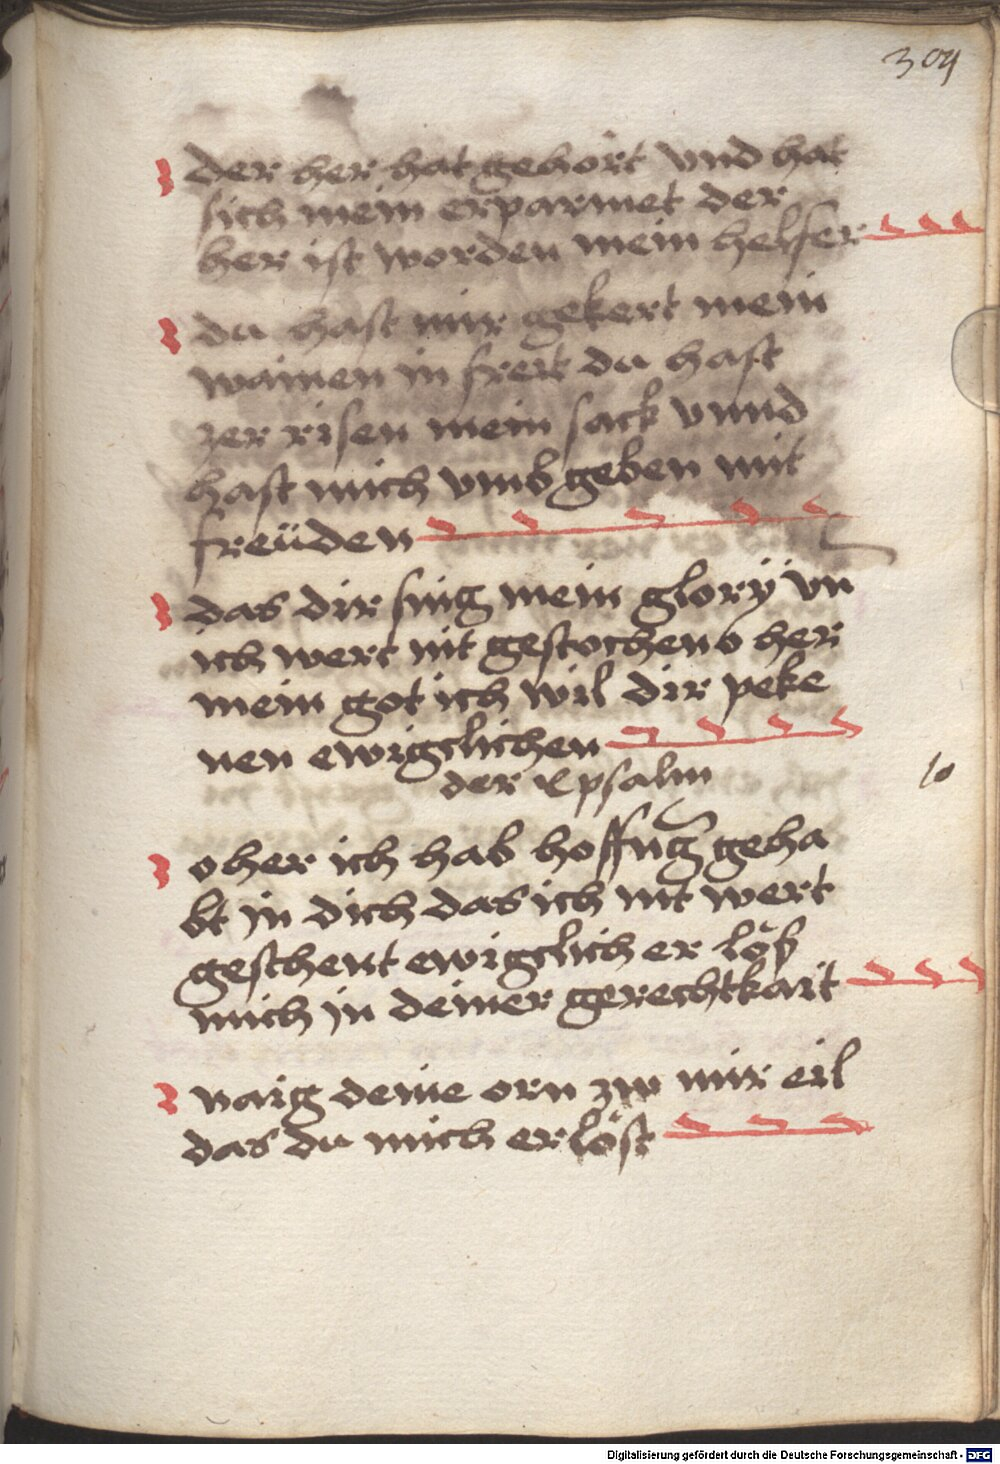 304
der her hat gehört vnd hat
sich mein erparmet der
her ist worden mein helfer
du hast mir gekert mein
wainen in frert du hast
zer risen mein sack vnnd
hast mich vmb geben mit
freüden
das dir sing mein glory vn
ich wert nit gestochen o her
mein got ich wil dir peke
nen ewigclichen
der psalm
10
o her ich hab hoffng geha
bt in dich das ich nit wert
geschent ewigclich er löß
mich in deiner gerechtkait
naig deine orn zw mir eil
das du mich erlöst
Digitalisierung gefördert durch die Deutsche Forschungsgemeinschaft - DFG